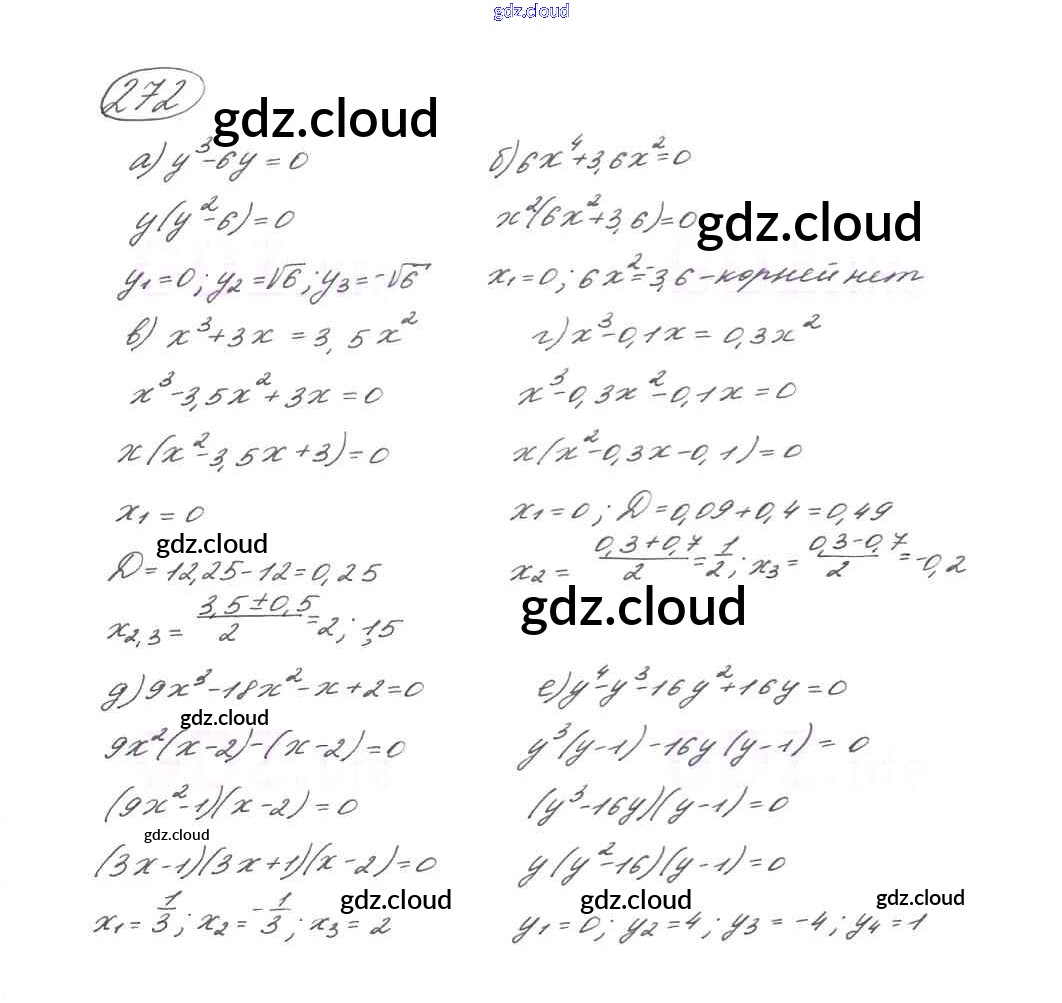 gdz.cloud
272
gdz.cloud
а) y³-6y=0
y(y²-6)=0
y₁=0; y₂=√6; y₃=-√6
б) 6x⁴+3,6x²=0
x²(6x²+3,6)=0
gdz.cloud
x₁=0; 6x²=-3,6 - корней нет
в) x³+3x=3,5x²
x³-3,5x²+3x=0
x(x²-3,5x+3)=0
x₁=0
gdz.cloud
D=12,25-12=0,25
x₂,₃= (3,5±0,5)/2 =2; 1,5
г) x³-0,1x=0,3x²
x³-0,3x²-0,1x=0
x(x²-0,3x-0,1)=0
x₁=0; D=0,09+0,4=0,49
x₂= (0,3+0,7)/2 = 1/2; x₃= (0,3-0,7)/2 =-0,2
gdz.cloud
д) 9x³-18x²-x+2=0
gdz.cloud
9x²(x-2)-(x-2)=0
(9x²-1)(x-2)=0
gdz.cloud
(3x-1)(3x+1)(x-2)=0
x₁= 1/3; x₂= -1/3; x₃=2
gdz.cloud
е) y⁴-y³-16y²+16y=0
y³(y-1)-16y(y-1)=0
(y³-16y)(y-1)=0
y(y²-16)(y-1)=0
gdz.cloud
gdz.cloud
y₁=0; y₂=4; y₃=-4; y₄=1